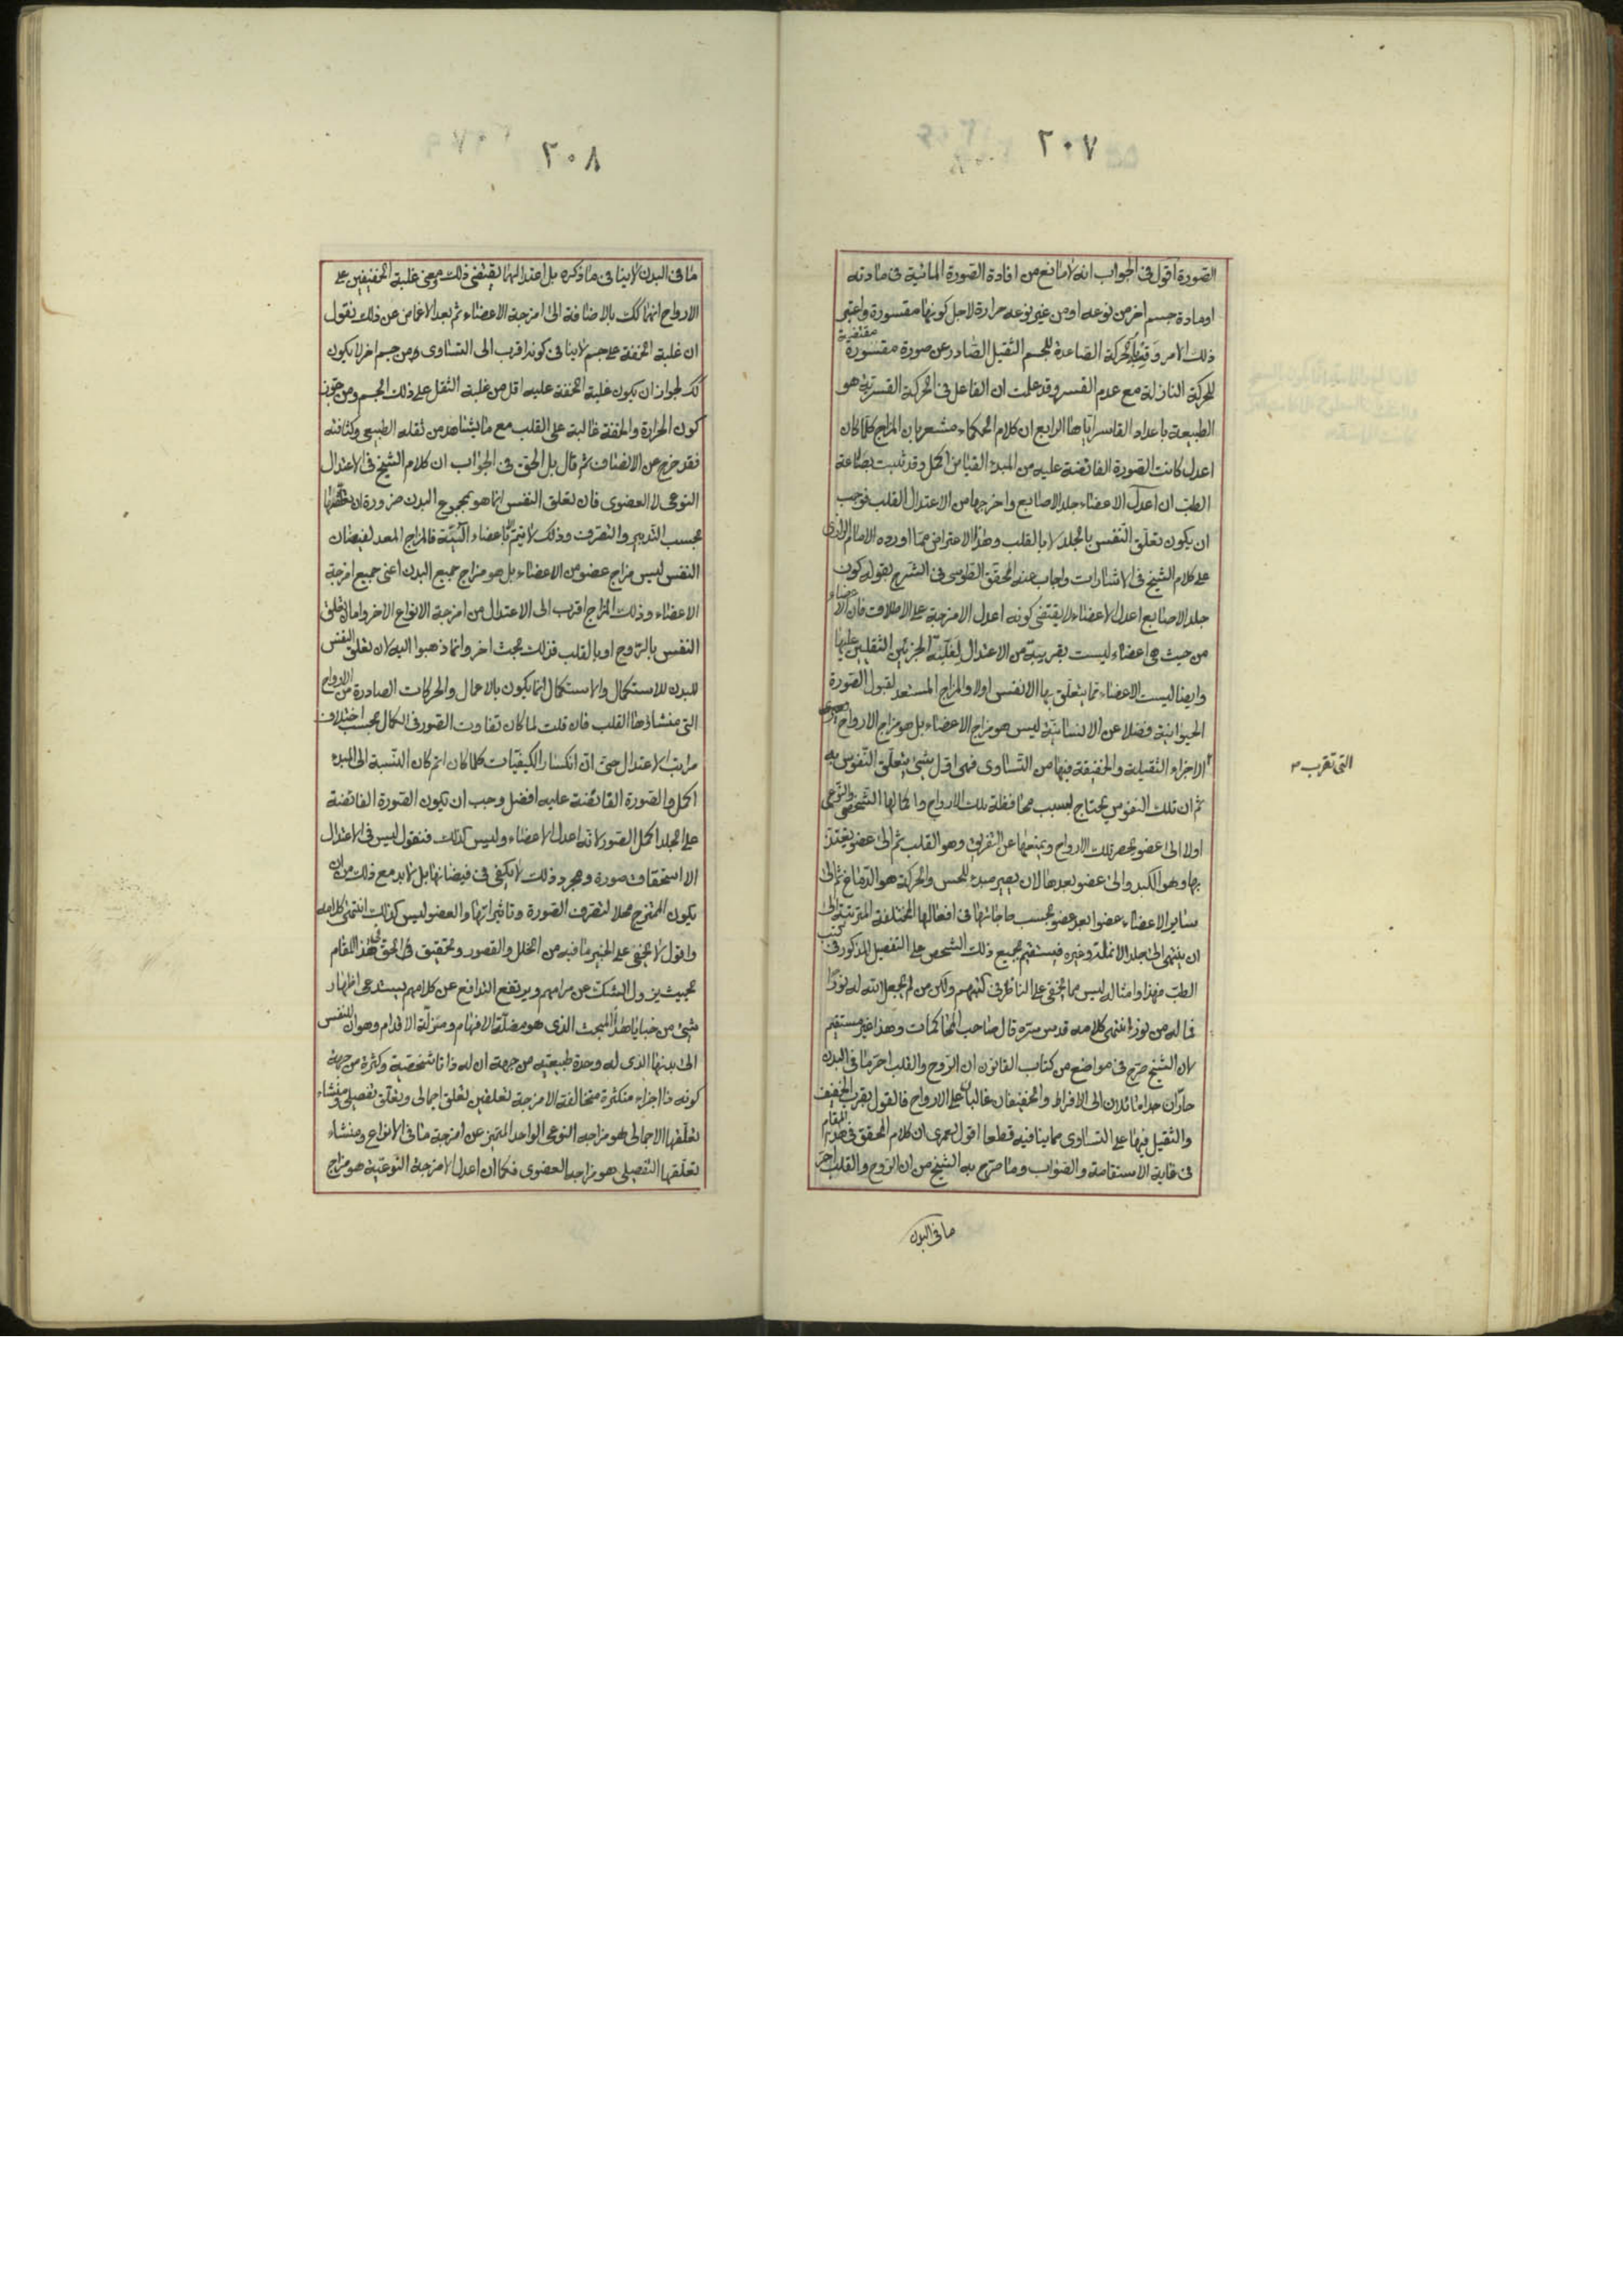 ٢٠٧
الصورة اقول فى الجواب انه لا مانع من افادة الصورة المائية فى مادته
او مادة جسم اخر من نوعه او من غير نوعه حرارة لاجل كونها مقسورة واعتبر
ذلك الامر وقته بالحركة الصاعدة للجسم الثقيل الصادر عن صورة مقسورة مقتضية
للحركة النازلة مع عدم القسر وقد علمت ان الفاعل فى الحركة القسرية هو
الطبيعة باعداد القاسر اياها الرابع ان كلام الحكماء مشعر بان المزاج كلما كان
اعدل كانت الصورة الفائضة عليه من المبدء الفياض اكمل وقد ثبت بصناعة
الطب ان اعدل الاعضاء جلد الاصابع واخرجها من الاعتدال القلب فوجب
ان يكون تعلق النفس بالجلد لا بالقلب وهذا الاعتراض مما اورده الامام الرازى
على كلام الشيخ فى الاشارات واجاب عنه المحقق الطوسى فى الشرح بقوله كون
جلد الاصابع اعدل الاعضاء لا يقتضى كونه اعدل الامزجة على الاطلاق فان الاعضاء
من حيث هى اعضاء ليست بقريبة من الاعتدال لغلبة الجزئين الثقيلين عليها
وايضا ليست الاعضاء مما يتعلق بها الانفس اولا والمزاج المستعد لقبول الصورة
الحيوانية فضلا عن الانسانية ليس هو مزاج الاعضاء بل هو مزاج الارواح
الاجزاء الثقيلة والخفيفة فيها من التساوى فهى اول شئ يتعلق النفوس به
التى تقرب
ثم ان تلك النفوس يحتاج بسبب محافظة تلك الارواح واكمالها الشخصى والنوعى
اولا الى عضو يحصر تلك الارواح ويمنعها عن التفريق وهو القلب ثم الى عضو يغتذى
بها وهو الكبد والى عضو يعدها لان يصير مبدء للحس والحركة هو الدماغ ثم الى
ساير الاعضاء عضوا بعد عضو بحسب حاجاتها فى افعالها المختلفة المترتبة الى
ان ينتهى الى جلد الانملة وغيره فيستقيم بجميع ذلك الشخص على التفصيل المذكور فى كتب
الطب فهذا وامثاله ليس مما يخفى على الناظر فى كتبهم ولكن من لم يجعل الله له نورا
فما له من نور انتهى كلامه قدس سره قال صاحب المحاكمات وهذا غير مستقيم
لان الشيخ صرح فى مواضع من كتاب القانون ان الروح والقلب احر ما فى البدن
حاران جدا مائلان الى الافراط والخفيفان غالبان على الارواح فالقول بقرب الخفيف
والثقيل فيها على التساوى مما ينافيه قطعا اقول لعمرى ان كلام المحقق فى هذا المقام
فى غاية الاستقامة والصواب وما صرح به الشيخ من ان الروح والقلب احر
ما فى البدن
٢٠٨
ما فى البدن لا ينافى ما ذكره بل اعتدالهما يقتضى ذلك ومعنى غلبة الخفيفين على
الارواح انها كك بالاضافة الى امزجة الاعضاء ثم بعد الاغماض عن ذلك يقول
ان غلبة الخفة على جسم لا ينافى كونه اقرب الى التساوى من جسم اخر لا يكون
كك لجواز ان يكون غلبة الخفة عليه اقل من غلبة الثقل على ذلك الجسم ومن جوز
كون الحرارة والخفة غالبة على القلب مع ما يشاهد من ثقله الطبيعى وكثافته
فقد خرج عن الانصاف ثم قال بل الحق فى الجواب ان كلام الشيخ فى الاعتدال
النوعى لا العضوى فان تعلق النفس انما هو بمجموع البدن ضرورة ان تعلقها
بحسب التدبير والتصرف وذلك لا يتم الا باعضاء آلية فالمزاج المعد لفيضان
النفس ليس مزاج عضو من الاعضاء بل هو مزاج جميع البدن اعنى جميع امزجة
الاعضاء وذلك المزاج اقرب الى الاعتدال من امزجة الانواع الاخر واما ان تعلق
النفس بالروح او بالقلب فذلك بحث اخر وانما ذهبوا اليه لان تعلق النفس
للبدن للاستكمال والاستكمال انما يكون بالاعمال والحركات الصادرة من الارواح
التى منشاؤها القلب فان قلت لما كان تفاوت الصور فى الكمال بحسب اختلاف
مراتب الاعتدال حتى ان انكسار الكيفيات كلما كان اتم كان النسبة الى المبدء
اكمل والصورة الفائضة عليه افضل وجب ان تكون الصورة الفائضة
على الجلد اكمل الصور لانه اعدل الاعضاء وليس كذلك فنقول ليس فى الاعتدال
الا استحقاق صورة ومجرد ذلك لا يكفى فى فيضانها بل لا بد مع ذلك من ان
يكون الممتزج محلا لتصرف الصورة وتاثيراتها والعضو ليس كذلك انتهى كلامه
واقول لا يخفى على الخبير ما فيه من الخلل والقصور وتحقيق الحق فى هذا المقام
بحيث يزول الشك عن مرامهم ويرتفع التدافع عن كلامهم يستدعى اظهار
شئ من خبايا هذا المبحث الذى هو مضلة الافهام ومزلة الاقدام وهو ان للنفس
الى بدنها الذى له وحدة طبيعية من جهة ان له ذاتا شخصية وكثرة من جهة
كونه ذا اجزاء متكثرة متخالفة الامزجة تعلقين تعلق اجمالى وتعلق تفصيلى ومنشاء
تعلقها الاجمالى هو مزاجه النوعى الواحد المتميز عن امزجة ما فى الانواع ومنشاء
تعلقها التفصيلى هو مزاجه العضوى فكما ان اعدل الامزجة النوعية هو مزاج